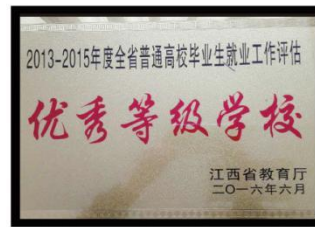 2013-2015年度全省普通高校毕业生就业工作评估
优秀等级学校
江西省教育厅
二〇一六年六月